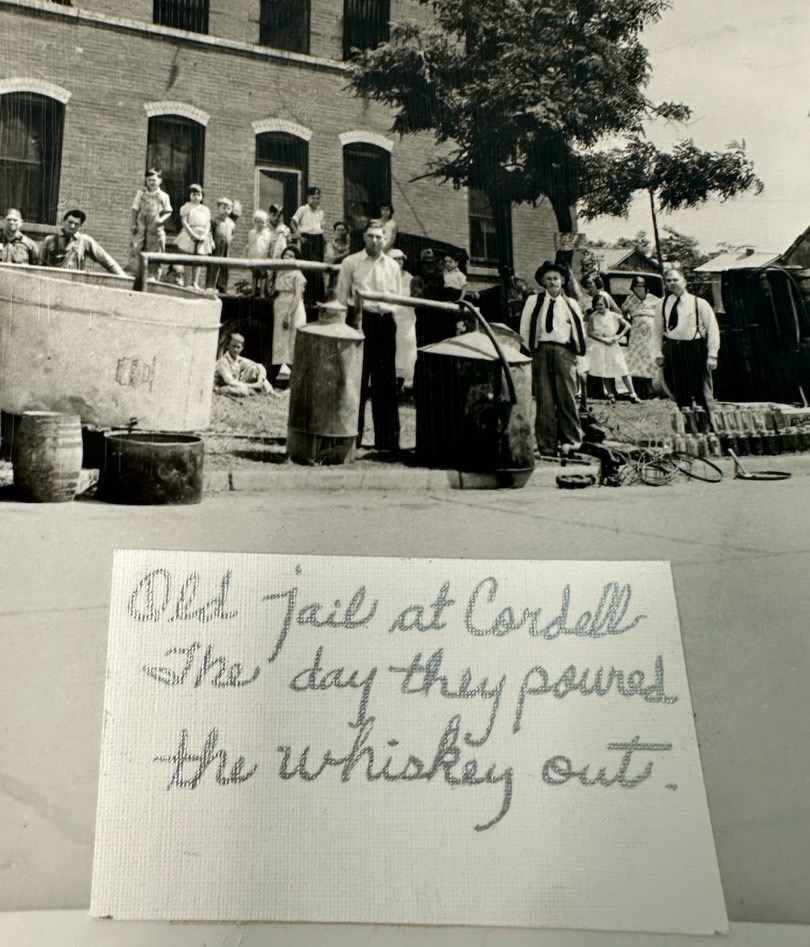 Old jail at Cordell
The day they poured
the whiskey out.